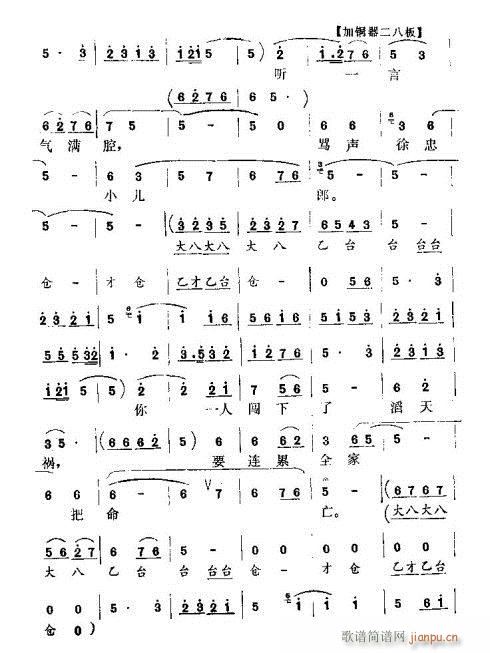 【加铜器二八板】
5·3 | 2 3 | 1 2 1 5 | 5) 2 | 1·2 7 6 | 5 -
听 一 言
(6 2 7 6 | 6 5·)
6 2 7 6 | 7 5 | 5 - | 0 0 | 6 6 | 3 6
气满腔， 骂声 徐忠
5 - | 5 - | 6 3 | 5 7 | 6 7 6 | 5 -
小儿 郎。
5 - | 5 - | (3 2 3 5 | 2 3 2 7 | 6 5 4 3 | 5 5 5
大八大八 大八 乙台 台 台台
仓 - | 才 仓 | 乙才乙台 | 仓 - | 0 5 6 | 5·3
2 3 2 1 | 5 1 | 1 1 6 | 5 6 1 6 | 5 1 6 5 | 2 3 2 1
5 5 5 3 2 | 1·2 | 3·5 3 2 | 1 2 1 | 5 5 | 5·3
1 2 1 5 | 5) 2 | 2 2 2 1 | 7 5 | 5 2 | 7 6
你 一人 闯下 了 滔天
3 5· | (6 6 6 2 | 5) 6 | 6 6 2 | 3 6 5 | 6 5
祸， 要 连累 全家
6 6 | 6 - | 6 6 | 6 7 6 | 5 - | (6 7 6 7
把 命 亡。 (大八大八
5 6 2 7 | 6 5 6 | 5 5 5 | 5 - | 0 0 | 0 0
大八 乙台 台 台台 仓 - 才 仓 乙才乙台
0 0 | 5·3 | 2 3 2 1 | 5 5 5 | 5·3 | 2 3 2 1
仓 0)
歌谱简谱网
jianpu.cn